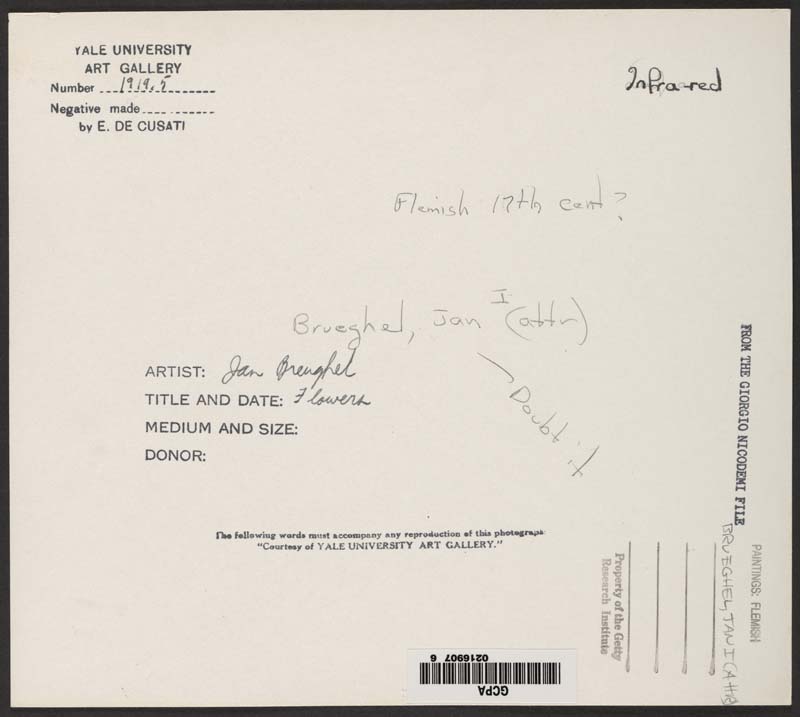 YALE UNIVERSITY
ART GALLERY
Number 1919.5
Negative made
by E. DE CUSATI
Infra-red
Flemish 17th cent?
Brueghel, Jan I (attr)
Doubt it
ARTIST: Jan Breughel
TITLE AND DATE: Flowers
MEDIUM AND SIZE:
DONOR:
The following words must accompany any reproduction of this photograph:
"Courtesy of YALE UNIVERSITY ART GALLERY."
FROM THE GIORGIO NICODEMI FILE
PAINTINGS: FLEMISH
BRUEGHEL, JAN I (Attr)
Property of the Getty
Research Institute
GCPA
0216907 6